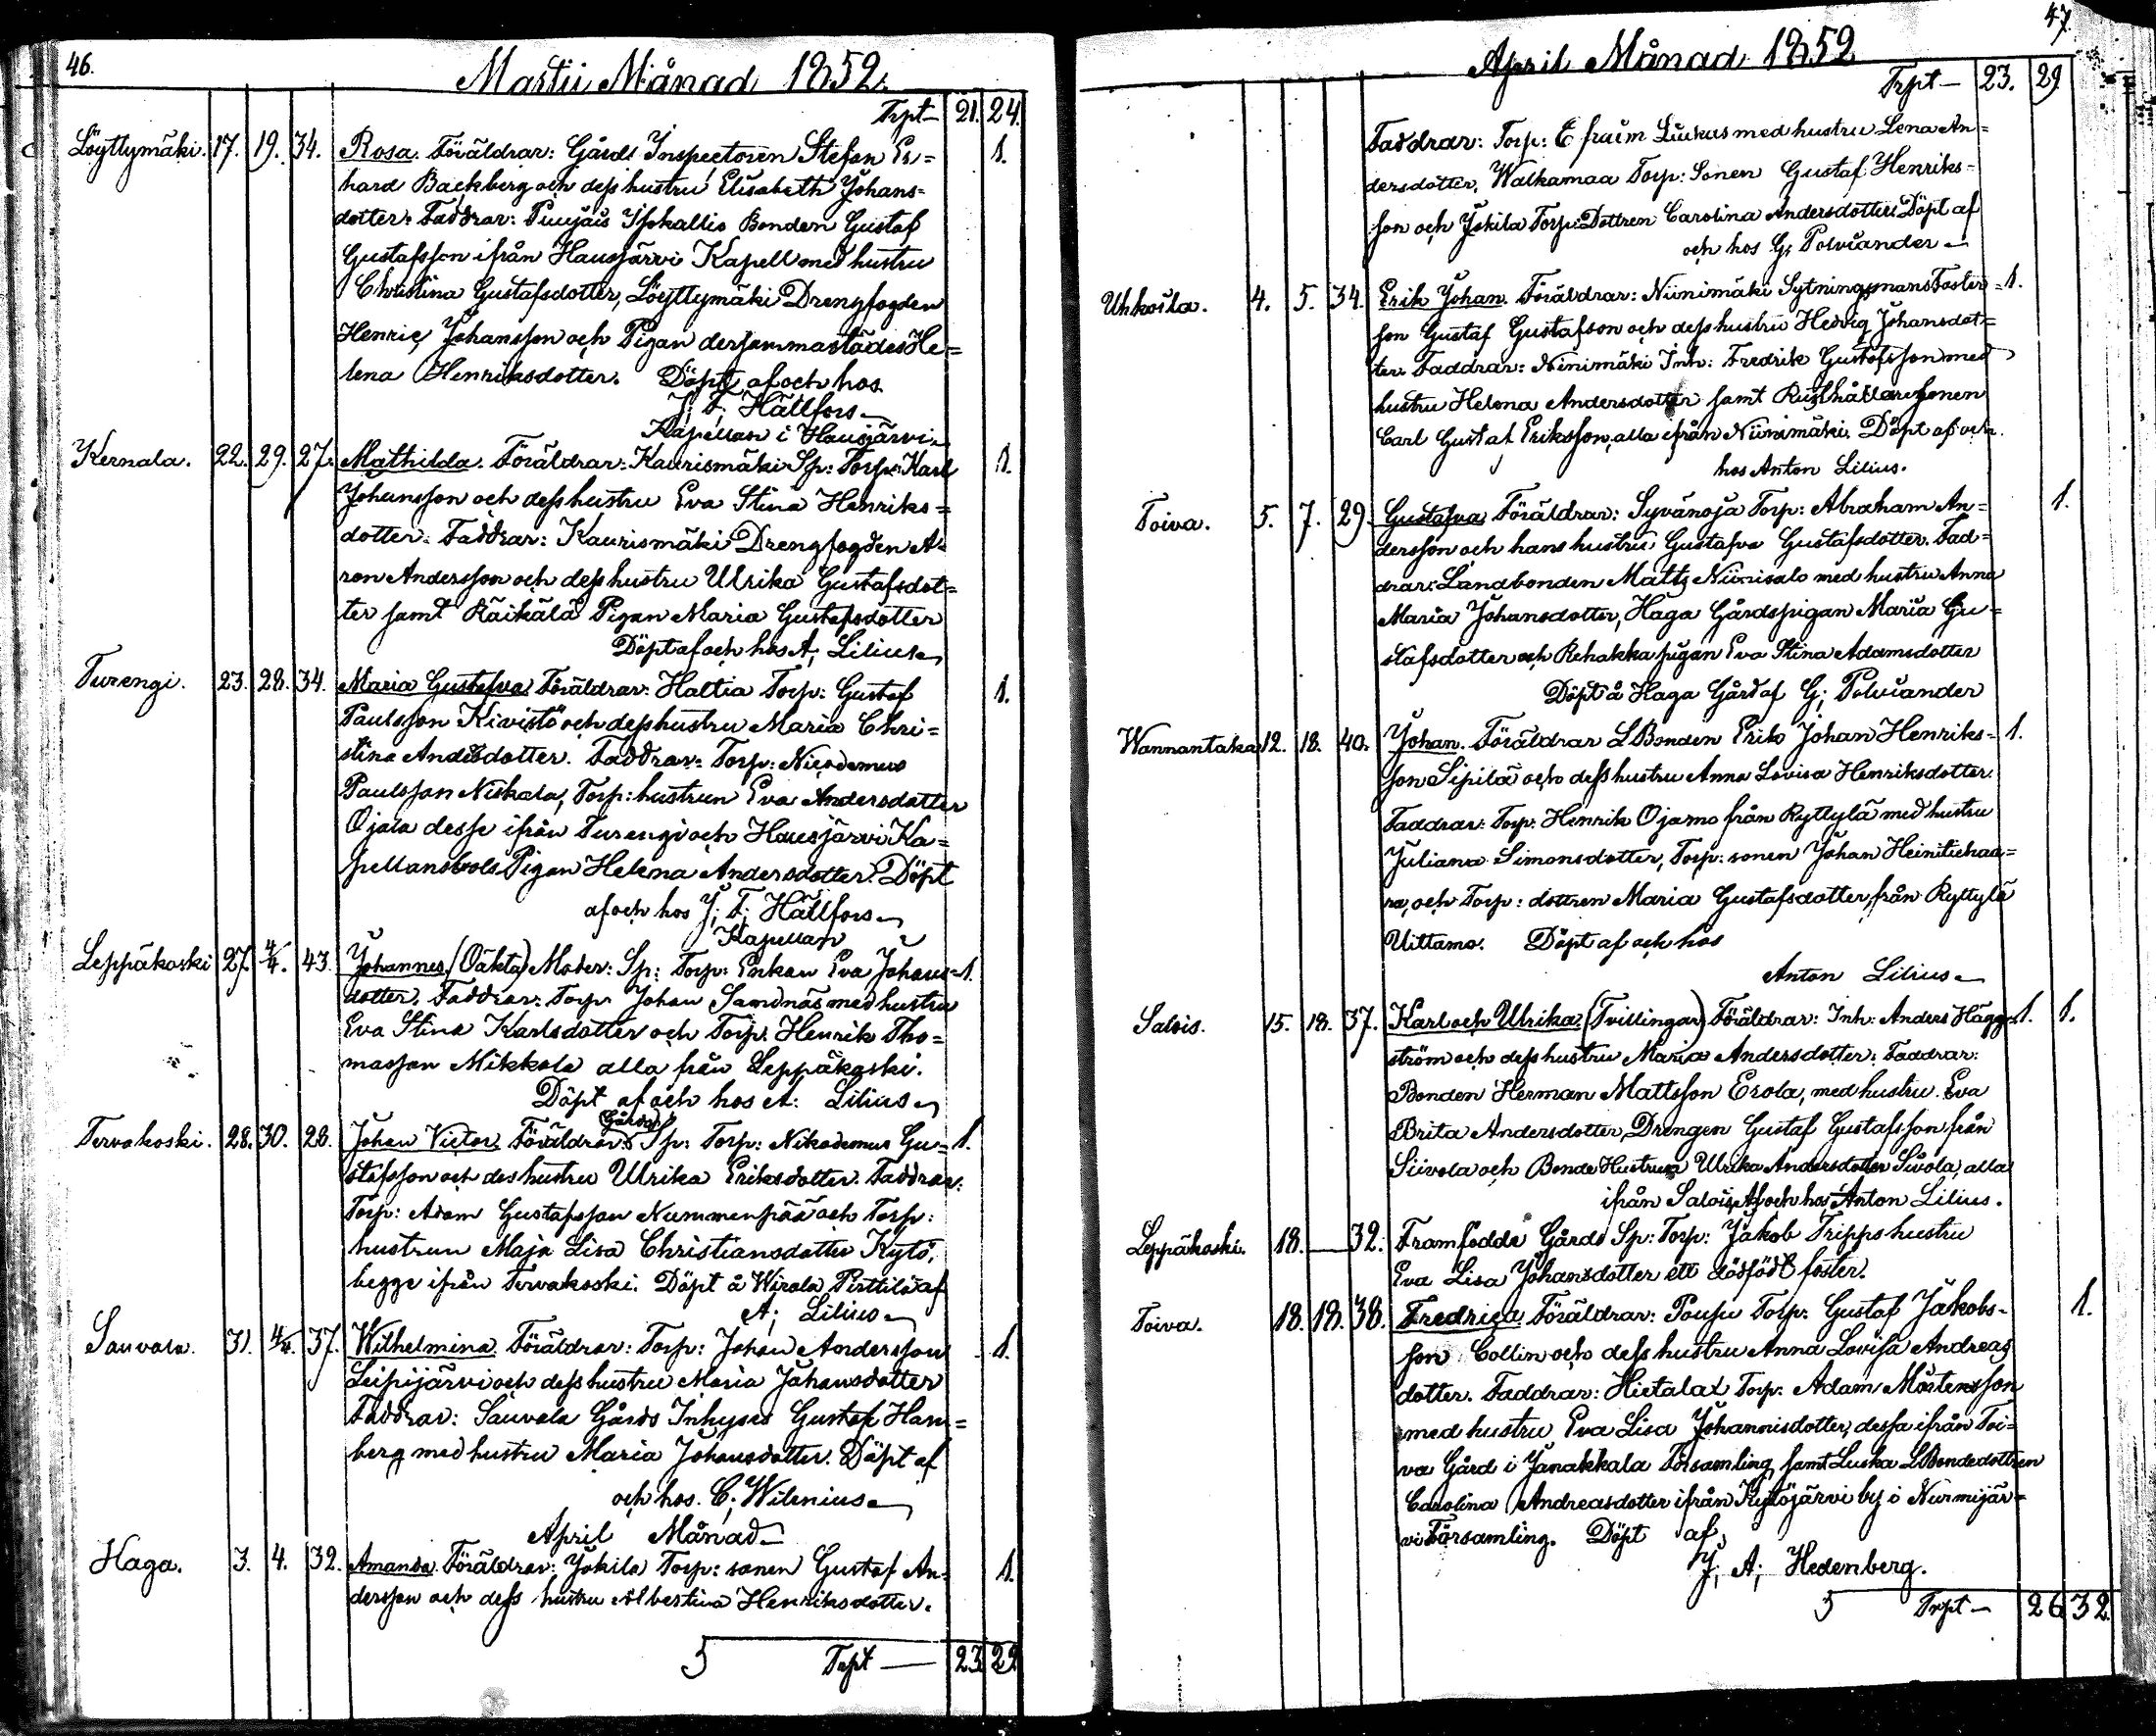 46.
Martii Månad 1852.
Trpt — 21. 24.
Löyttymäki. 17. 19. 34. Rosa. Föräldrar: Gårds Inspectoren Stefan Er= 1.
hard Backberg och dess hustru Elisabeth Johans=
dotter. Faddrar: Puujais Isokallio Bonden Gustaf
Gustafsson ifrån Hausjärvi Kapell med hustru
Christina Gustafsdotter, Löyttymäki Drengfogden
Henric Johansson och Pigan dersammastädes He=
lena Henriksdotter. Döpt af och hos
J; F; Hällfors
Kapellan i Hausjärvi
Kernala. 22. 29. 27. Mathilda. Föräldrar: Kaurismäki Sp: Torp: Karl 1.
Johansson och dess hustru Eva Stina Henriks=
dotter. Faddrar: Kaurismäki Drengfogden A=
ron Andersson och dess hustru Ulrika Gustafsdot=
ter samt Räikälä Pigan Maria Gustafsdotter
Döpt af och hos A; Lilius
Turengi. 23. 28. 34. Maria Gustafva. Föräldrar: Hattia Torp: Gustaf 1.
Paulsson Kivistö och dess hustru Maria Chri=
stina Andersdotter. Faddrar: Torp: Nicodemus
Paulsson Niskala, Torp: hustrun Eva Andersdotter
Ojala desse ifrån Turengi och Hausjärvi Ka=
pellansbols Pigan Helena Andersdotter. Döpt
af och hos J; F; Hällfors
Kapellan
Leppäkoski 27. 4/4. 43. Johannes. (Oäkta) Moder: Sp: Torp: Enkan Eva Johans= 1.
dotter. Faddrar: Torp: Johan Sandnäs med hustru
Eva Stina Karlsdotter och Torp: Henrik Tho=
masson Mikkola alla från Leppäkoski.
Döpt af och hos A: Lilius
Tervakoski. 28. 30. 28. Johan Victor. Föräldrar: Gårds Sp: Torp: Nikodemus Gu= 1.
stafsson och des hustru Ulrika Eriksdotter. Faddrar:
Torp: Adam Gustafsson Nummenpää och Torp:
hustrun Maja Lisa Christiansdotter Kytö,
begge ifrån Tervakoski. Döpt å Wirala Pirttilä af
A; Lilius
Sauvala. 31. 4/4. 37. Wilhelmina. Föräldrar: Torp: Johan Andersson 1.
Leipijärvi och dess hustru Maria Johansdotter
Faddrar: Sauvala Gårds Inhyses Gustaf Ham=
berg med hustru Maria Johansdotter. Döpt af
och hos C; Wilenius
April Månad
Haga. 3. 4. 32. Amanda. Föräldrar: Jokila Torp: sonen Gustaf An= 1.
dersson och dess hustru Albertina Henriksdotter.
5 Trpt — 23 29
47.
April Månad 1852
Trpt — 23. 29
Faddrar: Torp: Efraim Liukus med hustru Lena An=
dersdotter, Walkamaa Torp: Sonen Gustaf Henriks=
son och Jokila Torp: Dottren Carolina Andersdotter. Döpt af
och hos G; Polviander
Uhkoila. 4. 5. 34. Erik Johan. Föräldrar: Niinimäki Sytningsmans Foster= 1.
son Gustaf Gustafson och dess hustru Hedvig Johansdot=
ter. Faddrar: Niinimäki Inh: Fredrik Gustafsson med
hustru Helena Andersdotter samt Rusthållaresonen
Carl Gustaf Eriksson, alla ifrån Niinimäki. Döpt af och
hos Anton Lilius.
Toiva. 5. 7. 29. Gustafva. Föräldrar: Syvänoja Torp: Abraham An= 1.
dersson och hans hustru Gustafva Gustafsdotter. Fad=
drar: Landbonden Matts Niinisalo med hustru Anna
Maria Johansdotter, Haga Gårdspigan Maria Gu=
stafsdotter och Rehakka pigan Eva Stina Adamsdotter
Döpt å Haga Gård af G; Polviander
Wannantaka 12. 18. 40. Johan. Föräldrar LBonden Erik Johan Henriks= 1.
son Sipilä och dess hustru Anna Lovisa Henriksdotter.
Faddrar: Torp: Henrik Ojamo från Ryttylä med hustru
Juliana Simonsdotter, Torp: sonen Johan Heinikehaa=
ra, och Torp: dottren Maria Gustafsdotter från Ryttylä
Uittamo. Döpt af och hos
Anton Lilius
Salois. 15. 18. 37. Karl och Ulrika. (Tvillingar) Föräldrar: Inh: Anders Hägg= 1. 1.
ström och dess hustru Maria Andersdotter. Faddrar:
Bonden Herman Mattsson Erola, med hustru Eva
Brita Andersdotter, Drengen Gustaf Gustafsson från
Siivola och Bonde Hustrun Ulrika Andersdotter Sivola, alla
ifrån Salois. Af och hos Anton Lilius.
Leppäkoski. 18. — 32. Framfödde Gårds Sp: Torp: Jakob Tripps hustru
Eva Lisa Johansdotter ett dödfödt foster.
Toiva. 18. 18. 38. Fredrica. Föräldrar: Poupu Torp: Gustaf Jakobs= 1.
son Collin och dess hustru Anna Lovisa Andreas
dotter. Faddrar: Hietalax Torp: Adam Mårtensson
med hustru Eva Lisa Johannisdotter, dessa ifrån Toi=
va Gård i Janakkala Församling, samt Luska LBondedottren
Carolina Andreasdotter ifrån Kytöjärvi by i Nurmijär=
vi Församling. Döpt af
J; A; Hedenberg.
5 Trpt — 26 32.